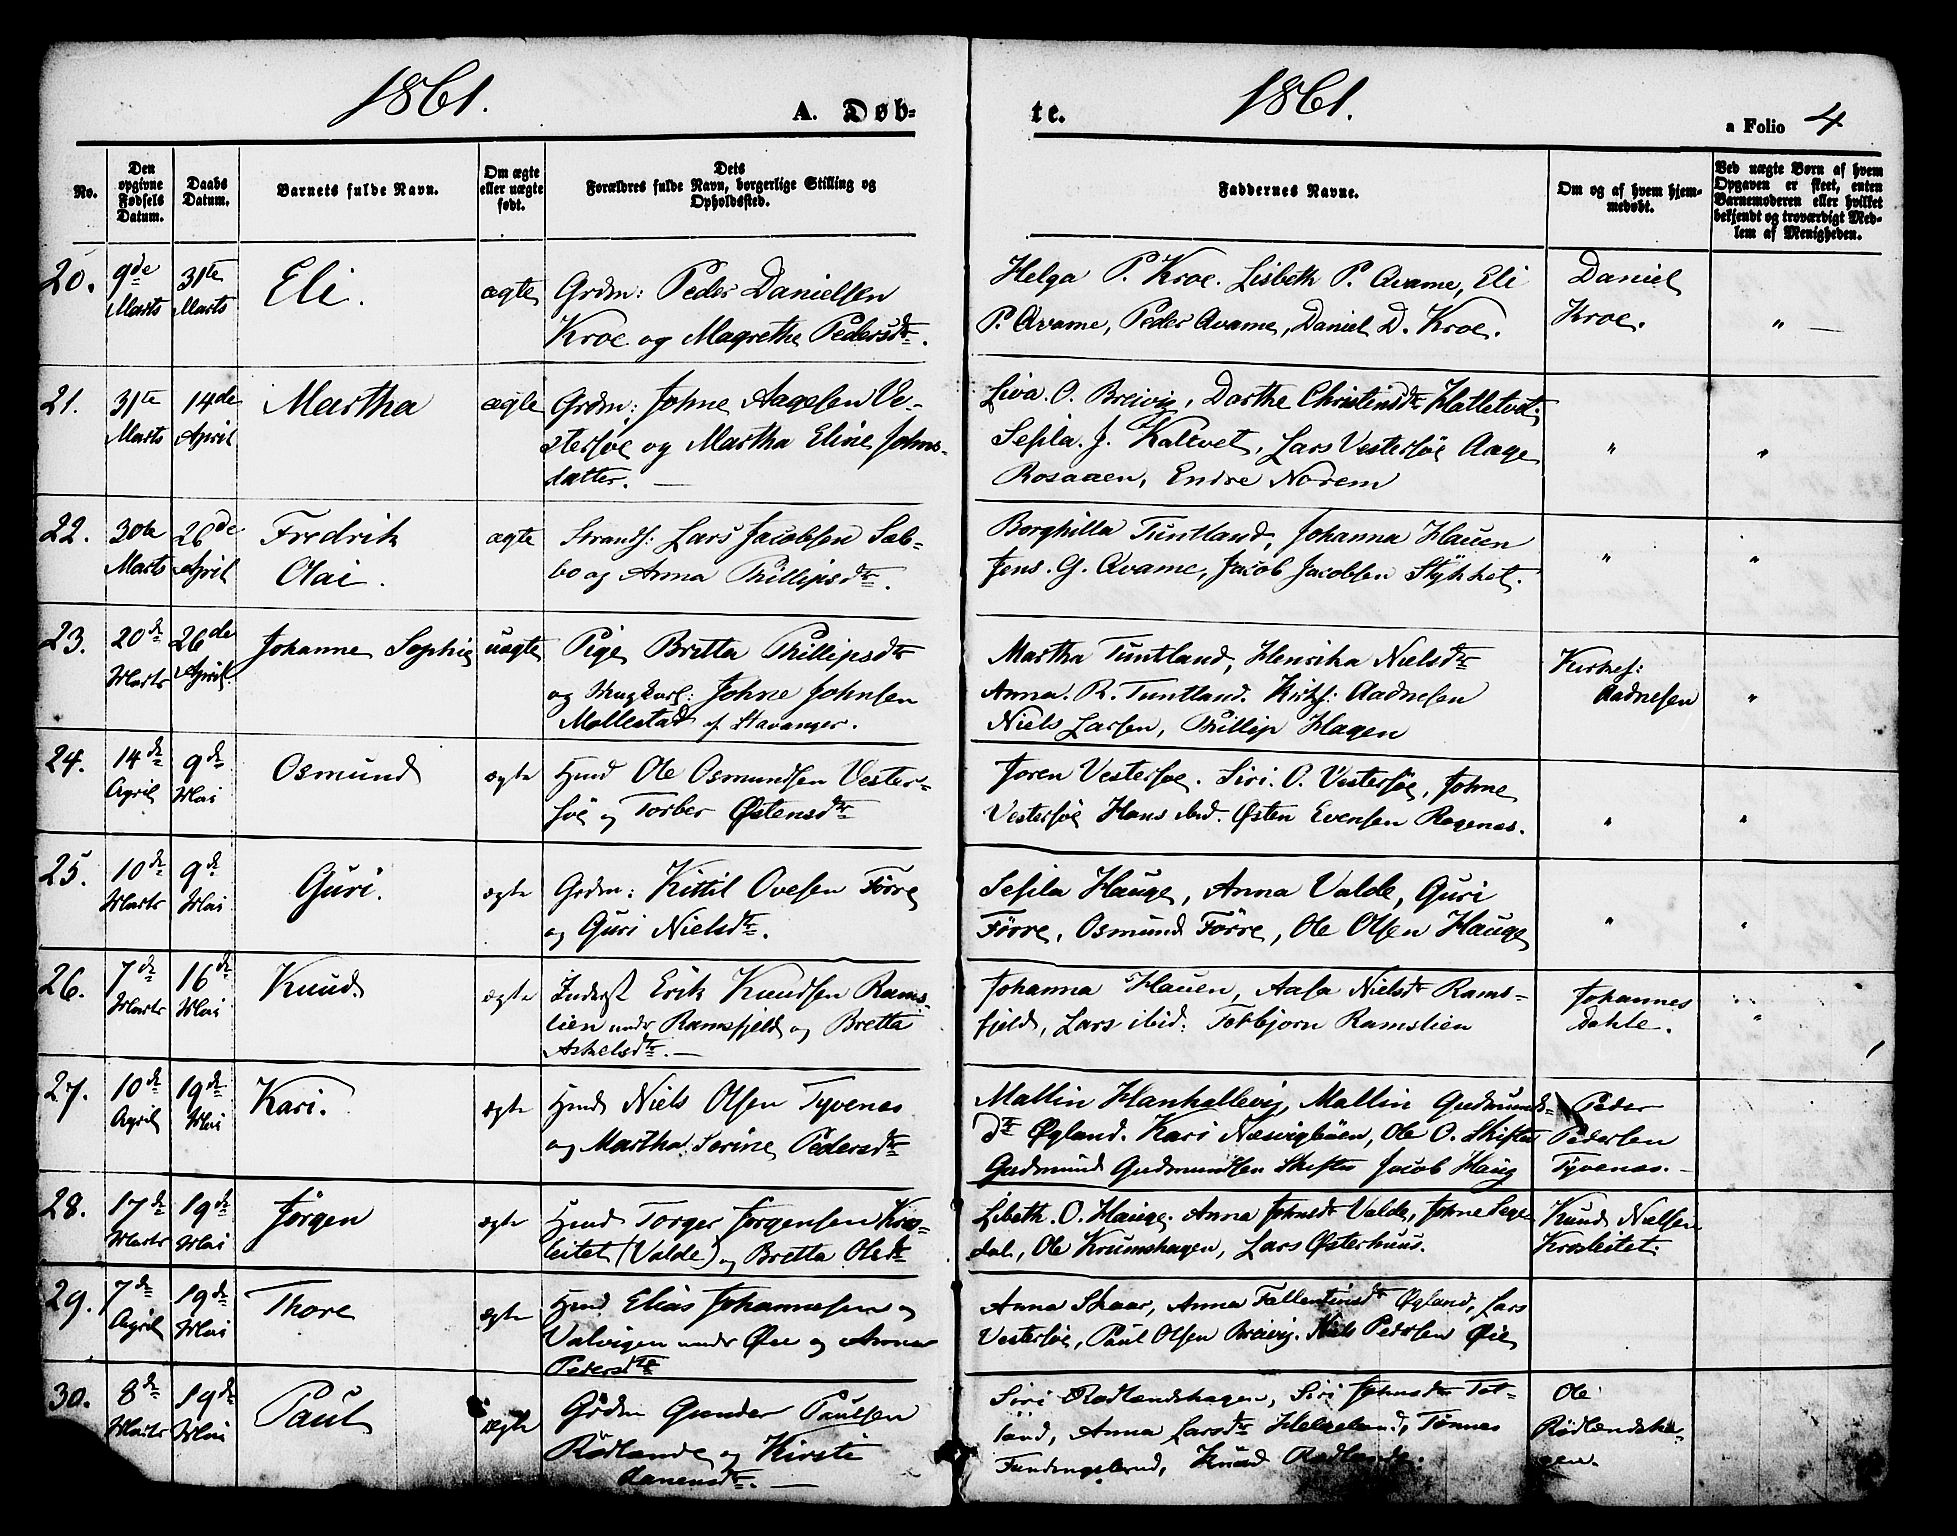 1861. A. Døb-
te. 1861. a Folio 4
No.
Den
opgivne
Fødsels
Datum.
Daabs
Datum.
Barnets fulde Navn.
Om ægte
eller uægte
født.
Dets
Forældres fulde Navn, borgerlige Stilling og
Opholdssted.
Faddernes Navne.
Om og af hvem hjem-
medøbt.
Ved uægte Børn af hvem
Opgaven er skeet, enten
Barnemoderen eller hvilket
bekjendt og troværdigt Med-
lem af Menigheden.
20. 9de Marts 31te Marts Eli. ægte
Grdm: Peder Danielsen
Kroe og Magrethe Pedersdtr.
Helga P. Kroe. Lisbeth P. Qvame, Eli
P. Qvame, Peder Qvame, Daniel D. Kroe.
Daniel
Kroe.
" —
21. 31te Marts 14de April Martha ægte
Grdm: Johne Aagesen Ve-
stersøe og Martha Eline Johns-
datter. —
Siva. O. Breivig, Dorthe Christensdtr Hattetvet.
Sesila. J. Kaltvet, Lars Vestersøe Aage
Rosaaen, Endre Norem
" "
22. 30te Marts 26de April Fredrik
Olai. ægte
Strands: Lars Jacobsen Sab-
bo og Anna Phillipsdtr.
Borghilla Tuntland, Johanna Hauen
Jens. G. Qvame, Jacob Jacobsen Stykket.
" "
23. 20de Marts 26de April. Johanne Sophie uægte
Pige Britta Phillipsdtr
og Ungkarl: Johne Johnsen
Mollestad af Stavanger.
Martha Tuntland, Henrika Nielsdtr
Anna. R. Tuntland. Kirks: Aadnesen
Niels Larsen, Phillip Hagen
Kirkes:
Aadnesen
"
24. 14de April 9de Mai Osmund ægte
Hmd Ole Osmundsen Vester-
søe og Torber Østensdtr
Joren Vestersøe. Siri. O. Vestersøe, Johne
Vestersøe Hans ibid. Østen Evensen Ragenas.
" "
25. 10de Marts 9de Mai Guri. ægte
Grdm: Kittil Ovesen Førre
og Guri Nielsdtr.
Sesila Hauge, Anna Valde, Guri
Førre, Osmund Førre, Ole Olsen Hauge
" "
26. 7de Marts 16de Mai Knud. ægte
Inderst Erik Knudsen Rams-
lien under Ramsfjeld og Bretta
Askelsdtr. —
Johanna Hauen, Aasa Nielsdtr Rams-
fjeld, Lars ibid: Torbjorn Ramslien
Johannes
Dahle.
"
27. 10de April 19de Mai Kari. ægte
Hmd Niels Olsen Tyvenas
og Martha Serine Pedersdtr
Mallin Hanhallevig, Mallin Gudmunds-
dtr Øgland. Kari Næsvigbøen, Ole O. Skiftes
Gudmund Gudmundsen Skiftes Jacob Haug
Peder
Pedersen
Tyvenas. —
28. 17de Marts 19de Mai Jørgen ægte
Hmd Torger Jørgensen Kros-
leitet (Valde) og Bretta Olsdtr
Lisbeth. O. Hauge. Anna Johnsdtr Valde, Johne Sege-
dal, Ole Krumshagen, Lars Østerhuus.
Knud Nielsen
Krosleitet.
29. 7de April 19de Mai Thore ægte
Hmd Elias Johannesen
Valvigen under Øie og Anna
Pedersdtr
Anna Skaar, Anna Fallentinsdtr Øgland, Lars
Vestersøe, Paul Olsen Breivig. Niels Pedersen Øie
30. 8de Marts 19de Mai Paul ægte
Grdm Gunder Paulsen
Rødlande og Kirsti
Lanensdtr. —
Siri Rødlandshagen, Siri Johnsdtr Tot-
land, Anna Larsdtr Helgeland, Tønnes
Fundingsland, Knud Rødlande.
Ole
Rødlandsha-
gen.